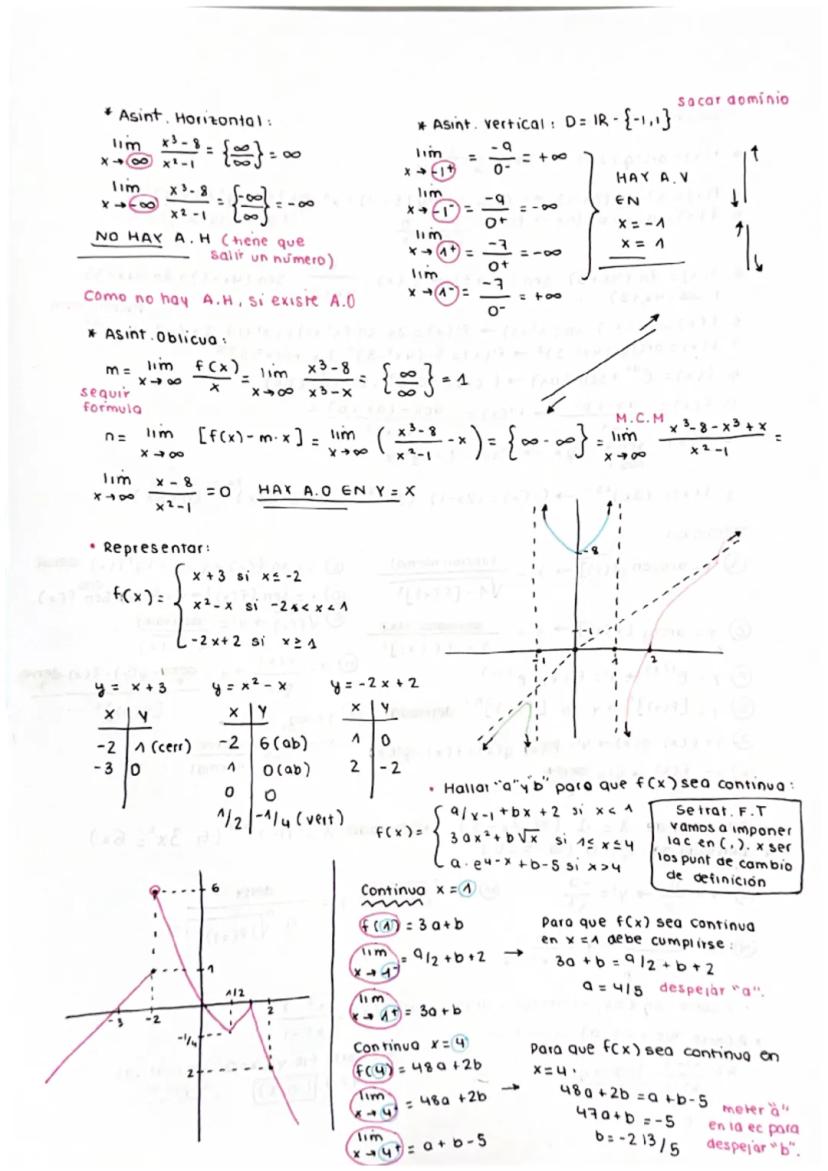 sacar dominio
* Asint. Horizontal:
lim x→∞ x³-8/x²-1 = {∞/∞} = ∞
lim x→-∞ x³-8/x²-1 = {-∞/∞} = -∞
NO HAY A.H (tiene que
salir un número)
Como no hay A.H, si existe A.O
* Asint. Vertical: D = IR - {-1,1}
lim x→-1⁺ = -9/0⁻ = +∞
lim x→-1⁻ = -9/0⁺ = -∞
lim x→1⁺ = -7/0⁺ = -∞
lim x→1⁻ = -7/0⁻ = +∞
HAY A.V
EN
x = -1
x = 1
* Asint. Oblicua:
m = lim x→∞ f(x)/x = lim x→∞ x³-8/x³-x = {∞/∞} = 1
seguir
formula
M.C.M
n = lim x→∞ [f(x)-m·x] = lim x→∞ (x³-8/x²-1 - x) = {∞-∞} = lim x→∞ x³-8-x³+x/x²-1 =
lim x→∞ x-8/x²-1 = 0 HAY A.O EN Y = X
-8
-1 1 2
• Representar:
f(x) = { x+3 si x≤-2
x²-x si -2<x<1
-2x+2 si x≥1
y = x+3 y = x²-x y = -2x+2
x | y x | y x | y
-2 | 1 (cerr) -2 | 6 (ab) 1 | 0
-3 | 0 1 | 0 (ab) 2 | -2
0 | 0
1/2 | -1/4 (vert)
• Hallar "a" y "b" para que f(x) sea continua:
f(x) = { a/x-1 + bx + 2 si x<1
3ax² + b√x si 1≤x≤4
a·e⁴⁻ˣ + b-5 si x>4
Se trat. F.T
vamos a imponer
la c en (,). x ser
los punt de cambio
de definición
6
1
1/2
-3 -2 2
-1/4
2
Continua x = 1
f(1) = 3a+b
lim x→1⁻ = a/2+b+2 →
lim x→1⁺ = 3a+b
Para que f(x) sea continua
en x=1 debe cumplirse:
3a+b = a/2+b+2
a = 4/5 despejar "a".
Continua x = 4
f(4) = 48a+2b
lim x→4⁻ = 48a+2b →
lim x→4⁺ = a+b-5
Para que f(x) sea continua en
x=4.
48a+2b = a+b-5
47a+b = -5
b = -213/5
meter "a"
en la ec para
despejar "b".